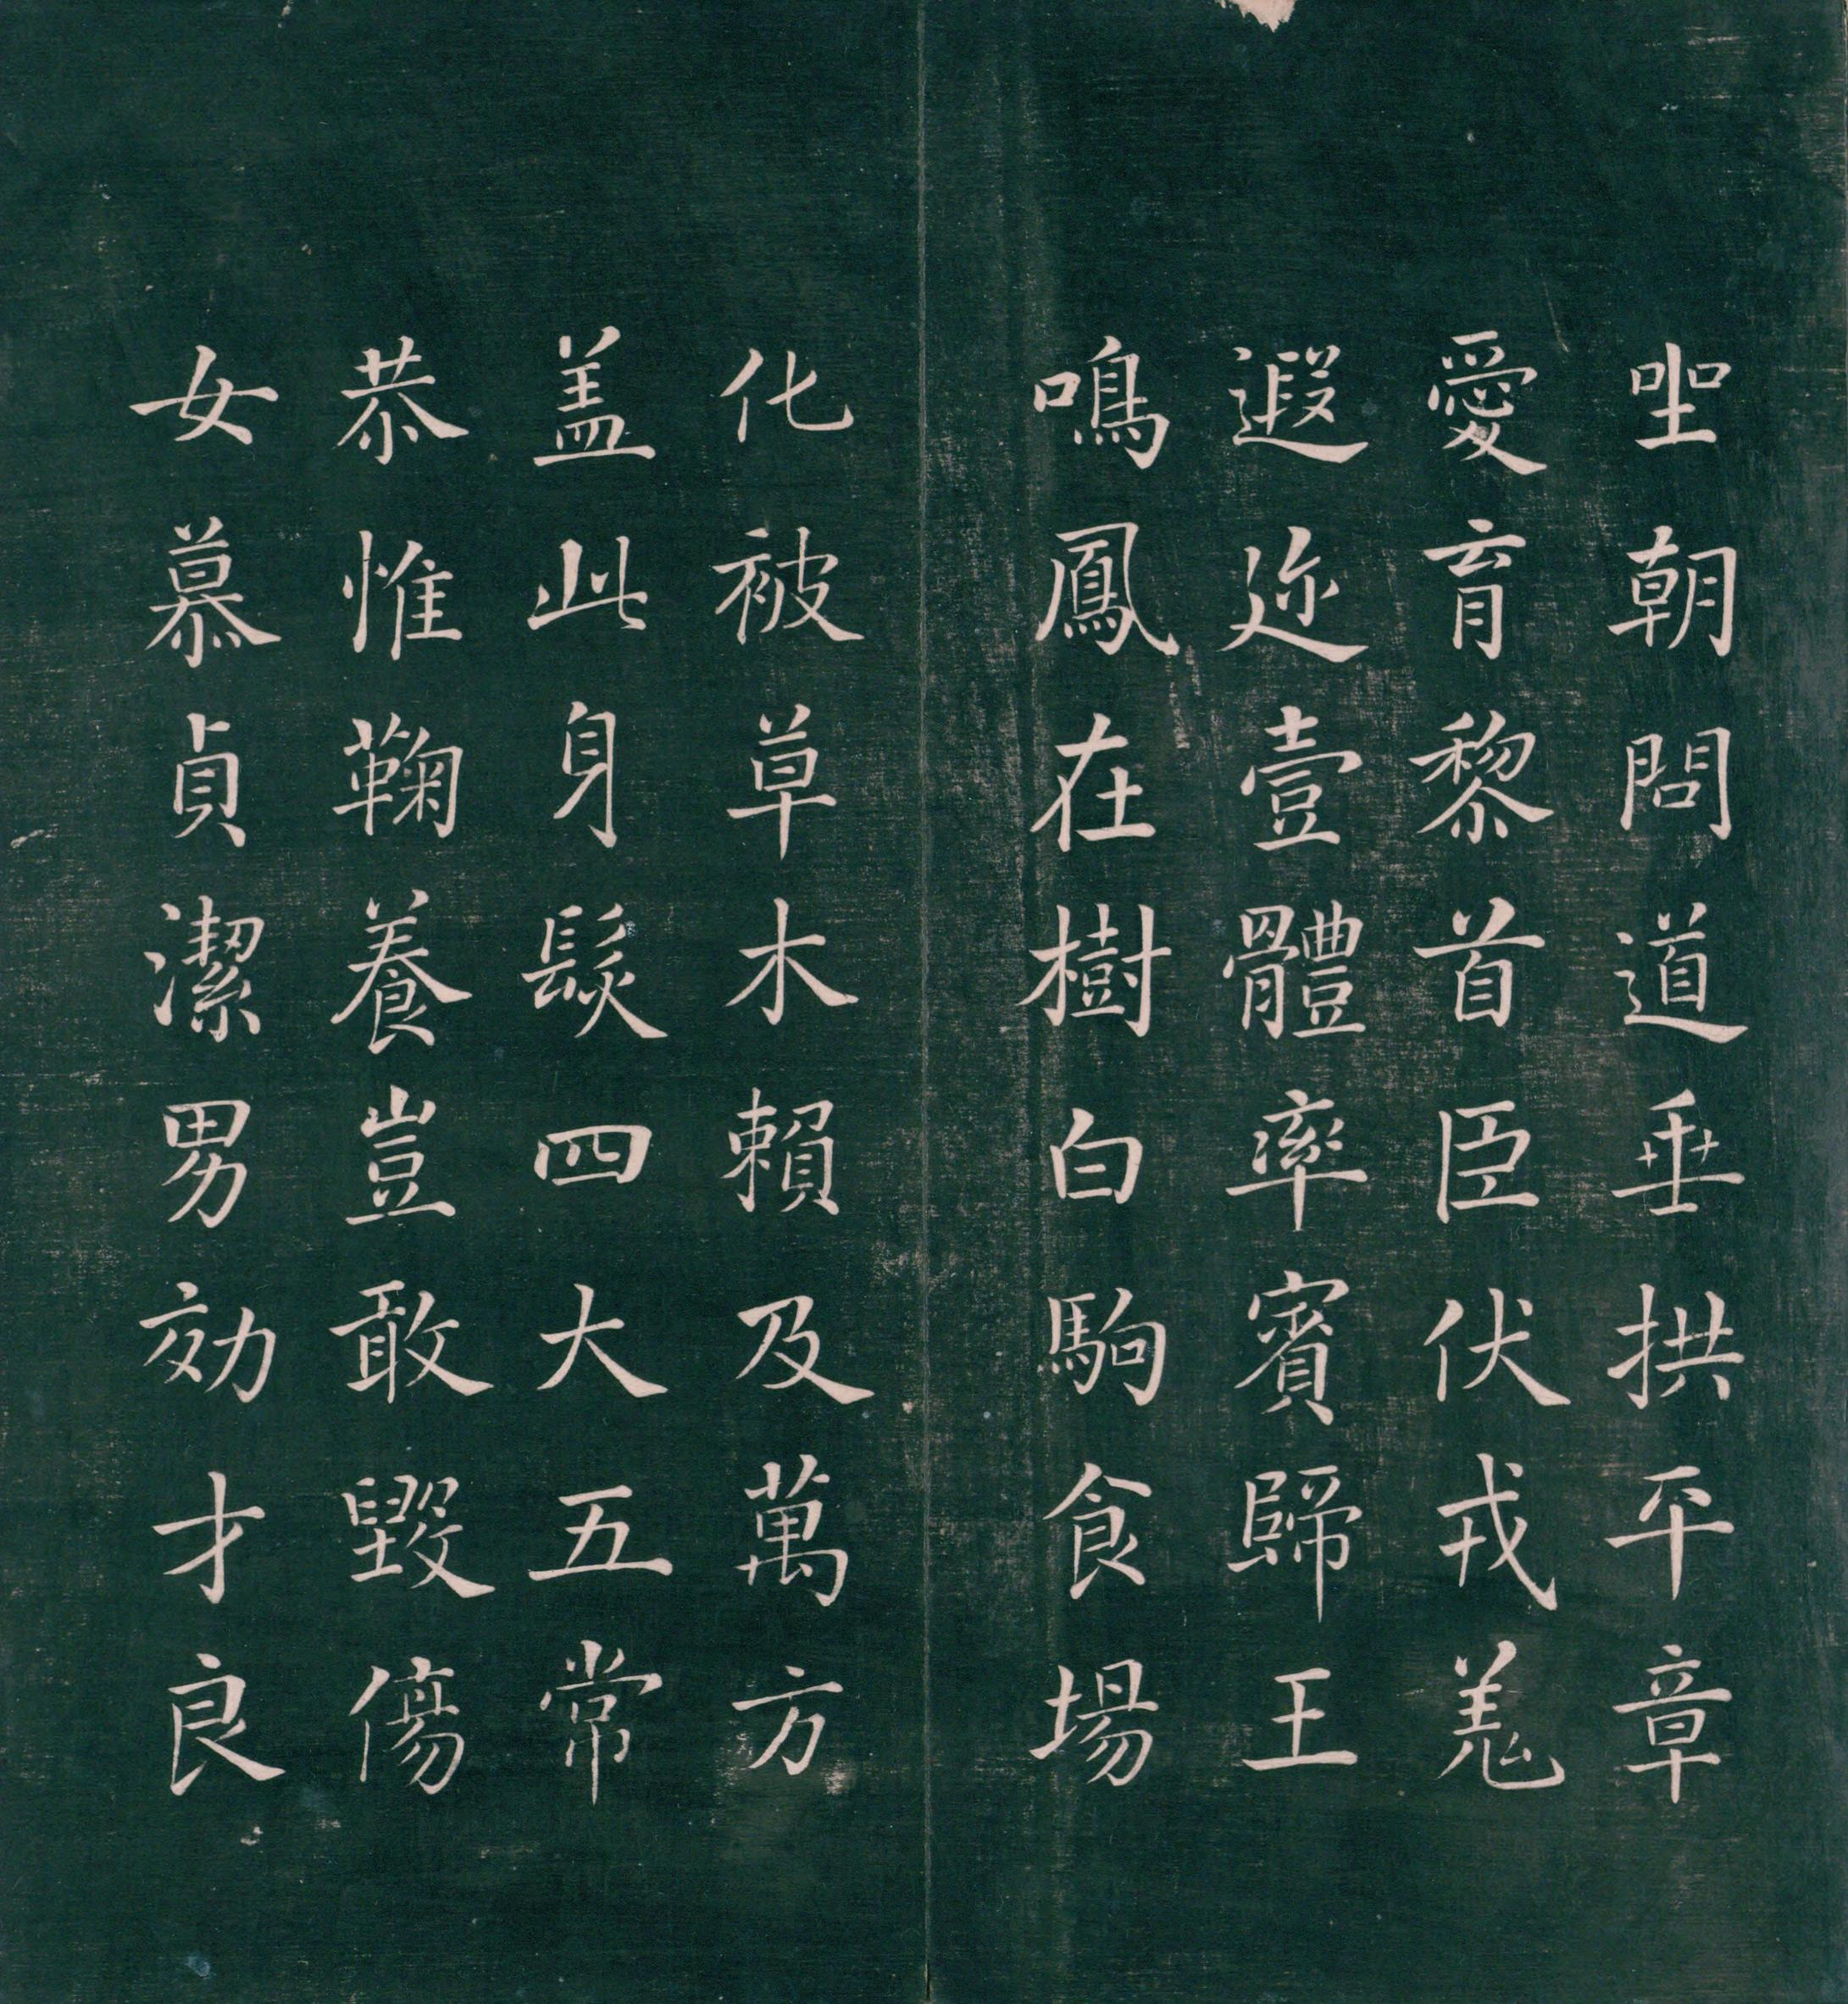 坐朝問道垂拱平章
愛育黎首臣伏戎羌
遐迩壹體率賓歸王
鳴鳳在樹白駒食場
化被草木賴及萬方
盖此身髮四大五常
恭惟鞠養豈敢毀傷
女慕貞潔男効才良